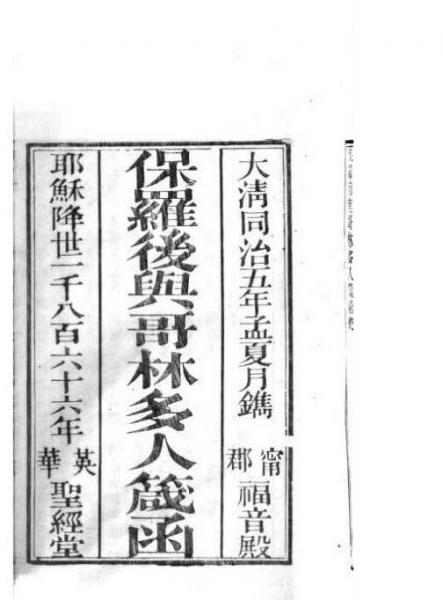 大清同治五年孟夏月鐫 甯郡 福音殿
保羅後與哥林多人箋函
耶穌降世一千八百六十六年 英華 聖經堂